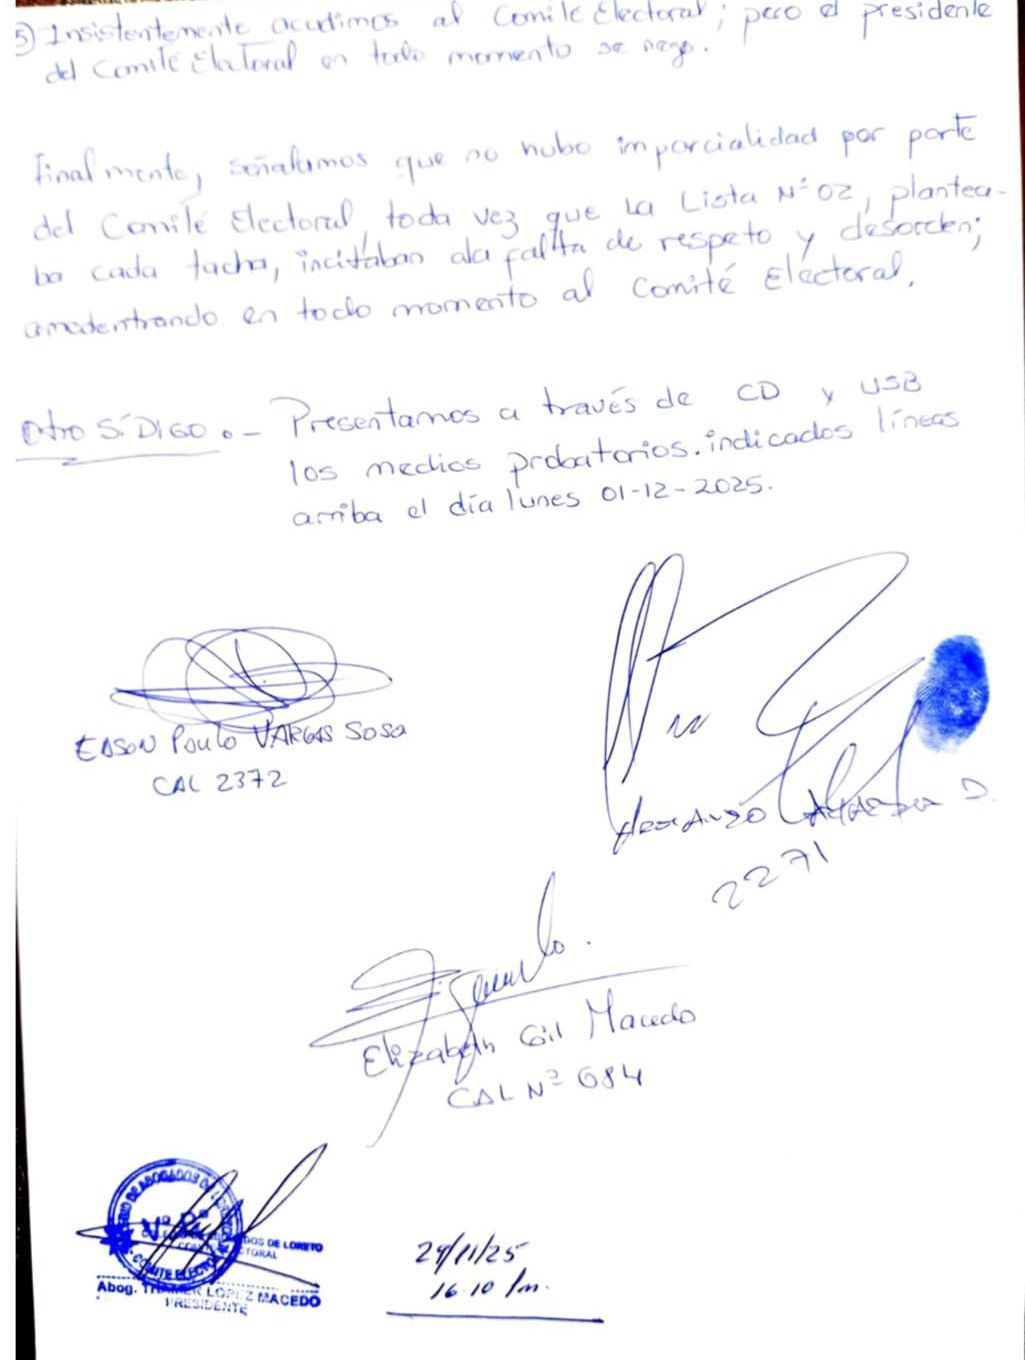 5) Insistentemente acudimos al Comité Electoral; pero el presidente
del Comité Electoral en todo momento se negó.
Finalmente, señalamos que no hubo imparcialidad por parte
del Comité Electoral, toda vez que la Lista N° 02, plantea-
ba cada tacha, incitaban ala falta de respeto y desorden;
amedentrando en todo momento al Comité Electoral.
Otro SÍ DIGO.- Presentamos a través de CD y USB
los medios probatorios.indicados líneas
arriba el día lunes 01-12-2025.
EDSON Paulo VARGAS SOSA
CAL 2372
2271
Elizabeth Gil Macedo
CAL N° 684
COLEGIO DE ABOGADOS DE LORETO
V° B°
COMITE ELECTORAL
Abog. THAMER LOPEZ MACEDO
PRESIDENTE
29/11/25
16.10 pm.